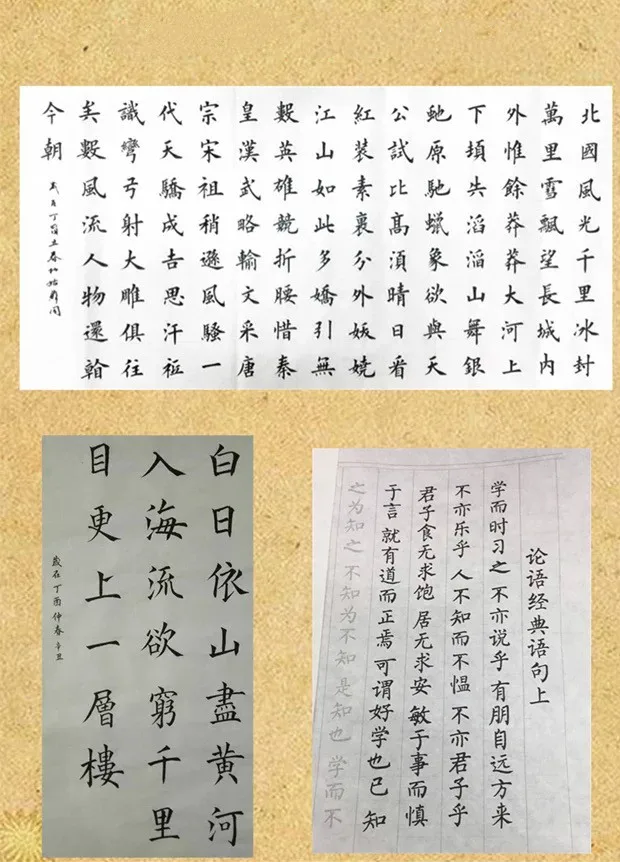 北國風光千里冰封
萬里雪飄望長城内
外惟餘莽莽大河上
下頓失滔滔山舞銀
虵原馳蠟象欲與天
公試比高須晴日看
紅裝素裹分外妖嬈
江山如此多嬌引無
數英雄競折腰惜秦
皇漢武略輸文采唐
宗宋祖稍遜風騷一
代天驕成吉思汗祗
識彎弓射大雕俱往
矣數風流人物還看
今朝
歲在丁酉立春
白日依山盡黄河
入海流欲窮千里
目更上一層樓
歲在丁酉仲春辛丑
论语经典语句上
学而时习之 不亦说乎 有朋自远方来
不亦乐乎 人不知而不愠 不亦君子乎
君子食无求饱 居无求安 敏于事而慎
于言 就有道而正焉 可谓好学也已 知
之为知之 不知为不知 是知也 学而不